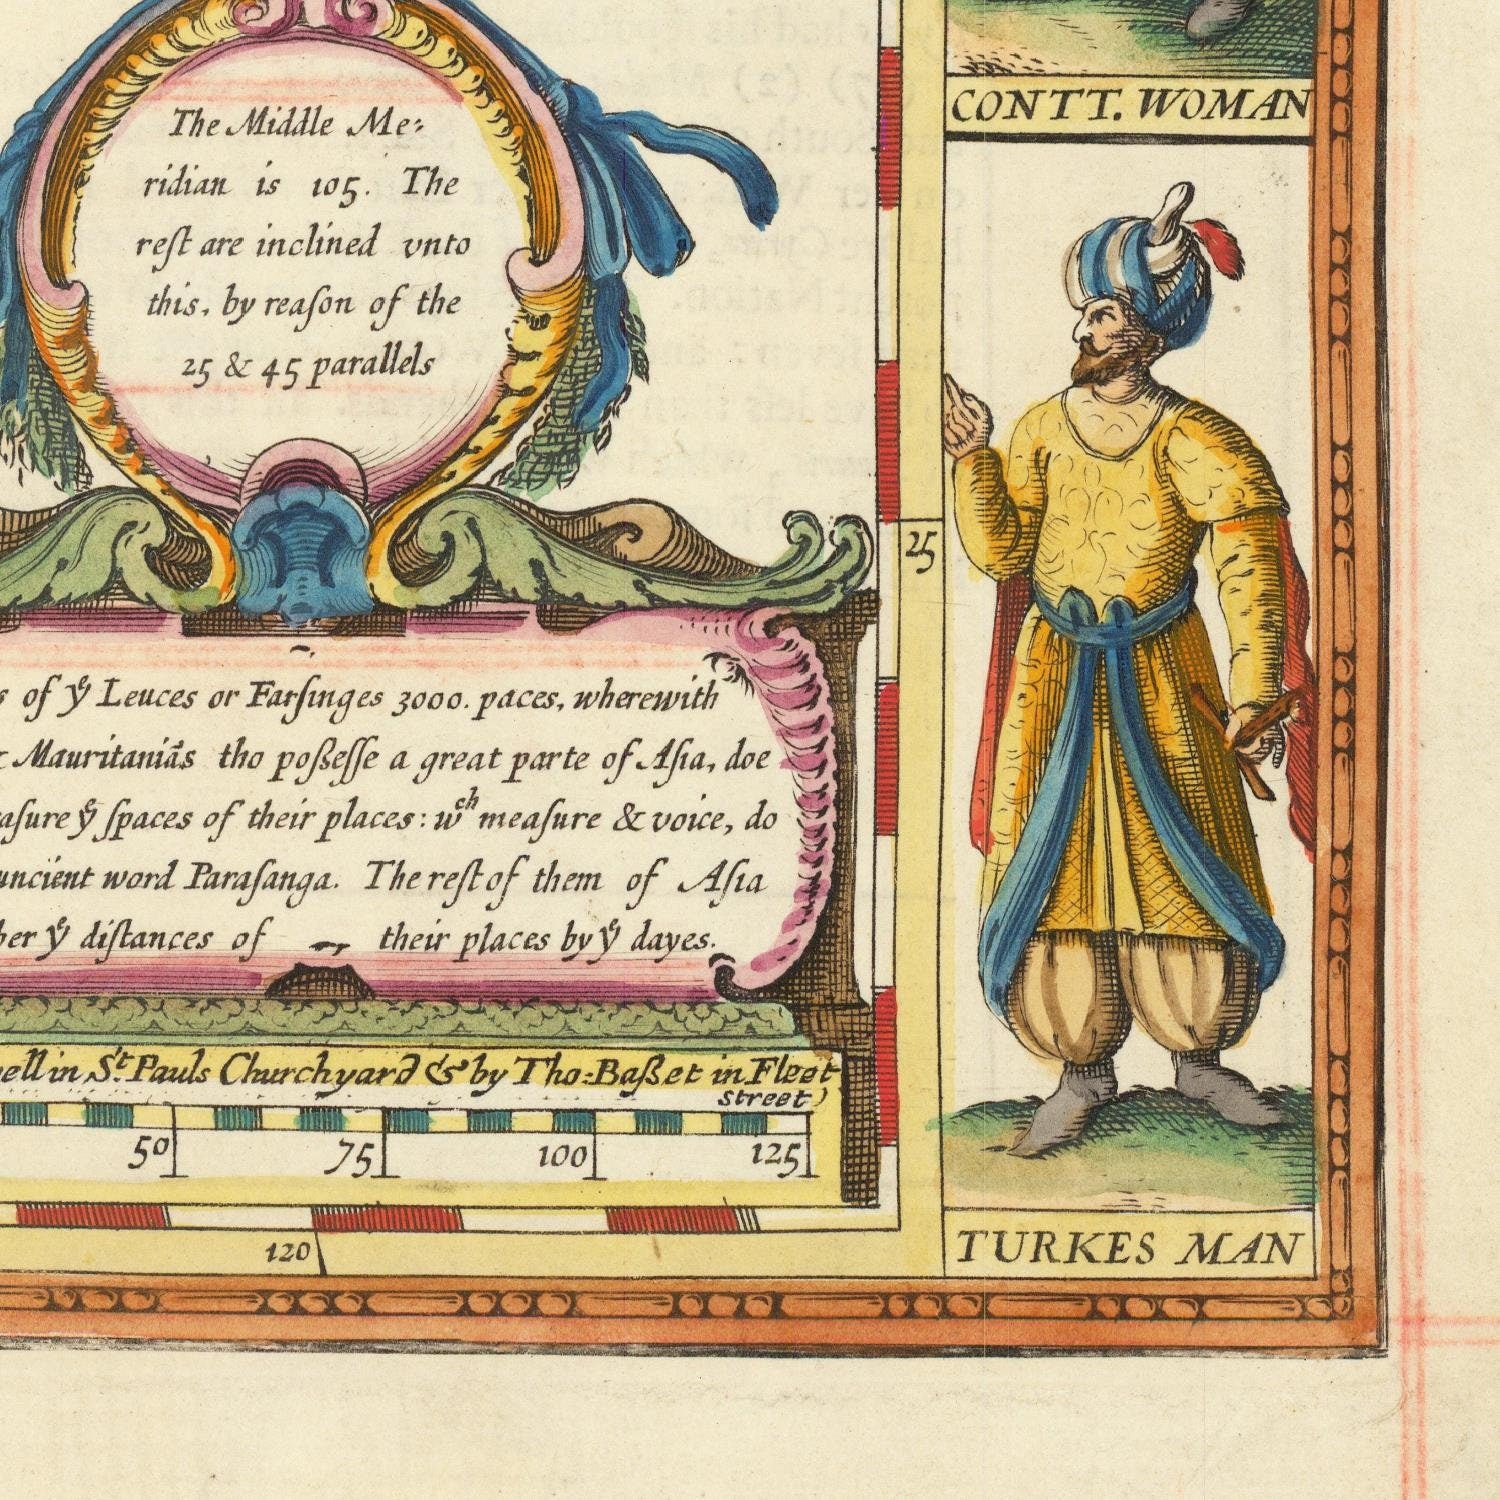 The Middle Me:
ridian is 105. The
reſt are inclined vnto
this, by reaſon of the
25 & 45 parallels
of yͤ Leuces or Farſinges 3000. paces, wherewith
Mauritaniãs tho poßeſſe a great parte of Aſia, doe
yͤ ſpaces of their places: wͨͪ meaſure & voice, do
word Paraſanga. The reſt of them of Aſia
yͤ diſtances of their places by yͤ dayes.
in Sᵗ. Pauls Churchyard & by Tho: Baßet in Fleet
street)
50 75 100 125
120
25
CONTT. WOMAN
TURKES MAN